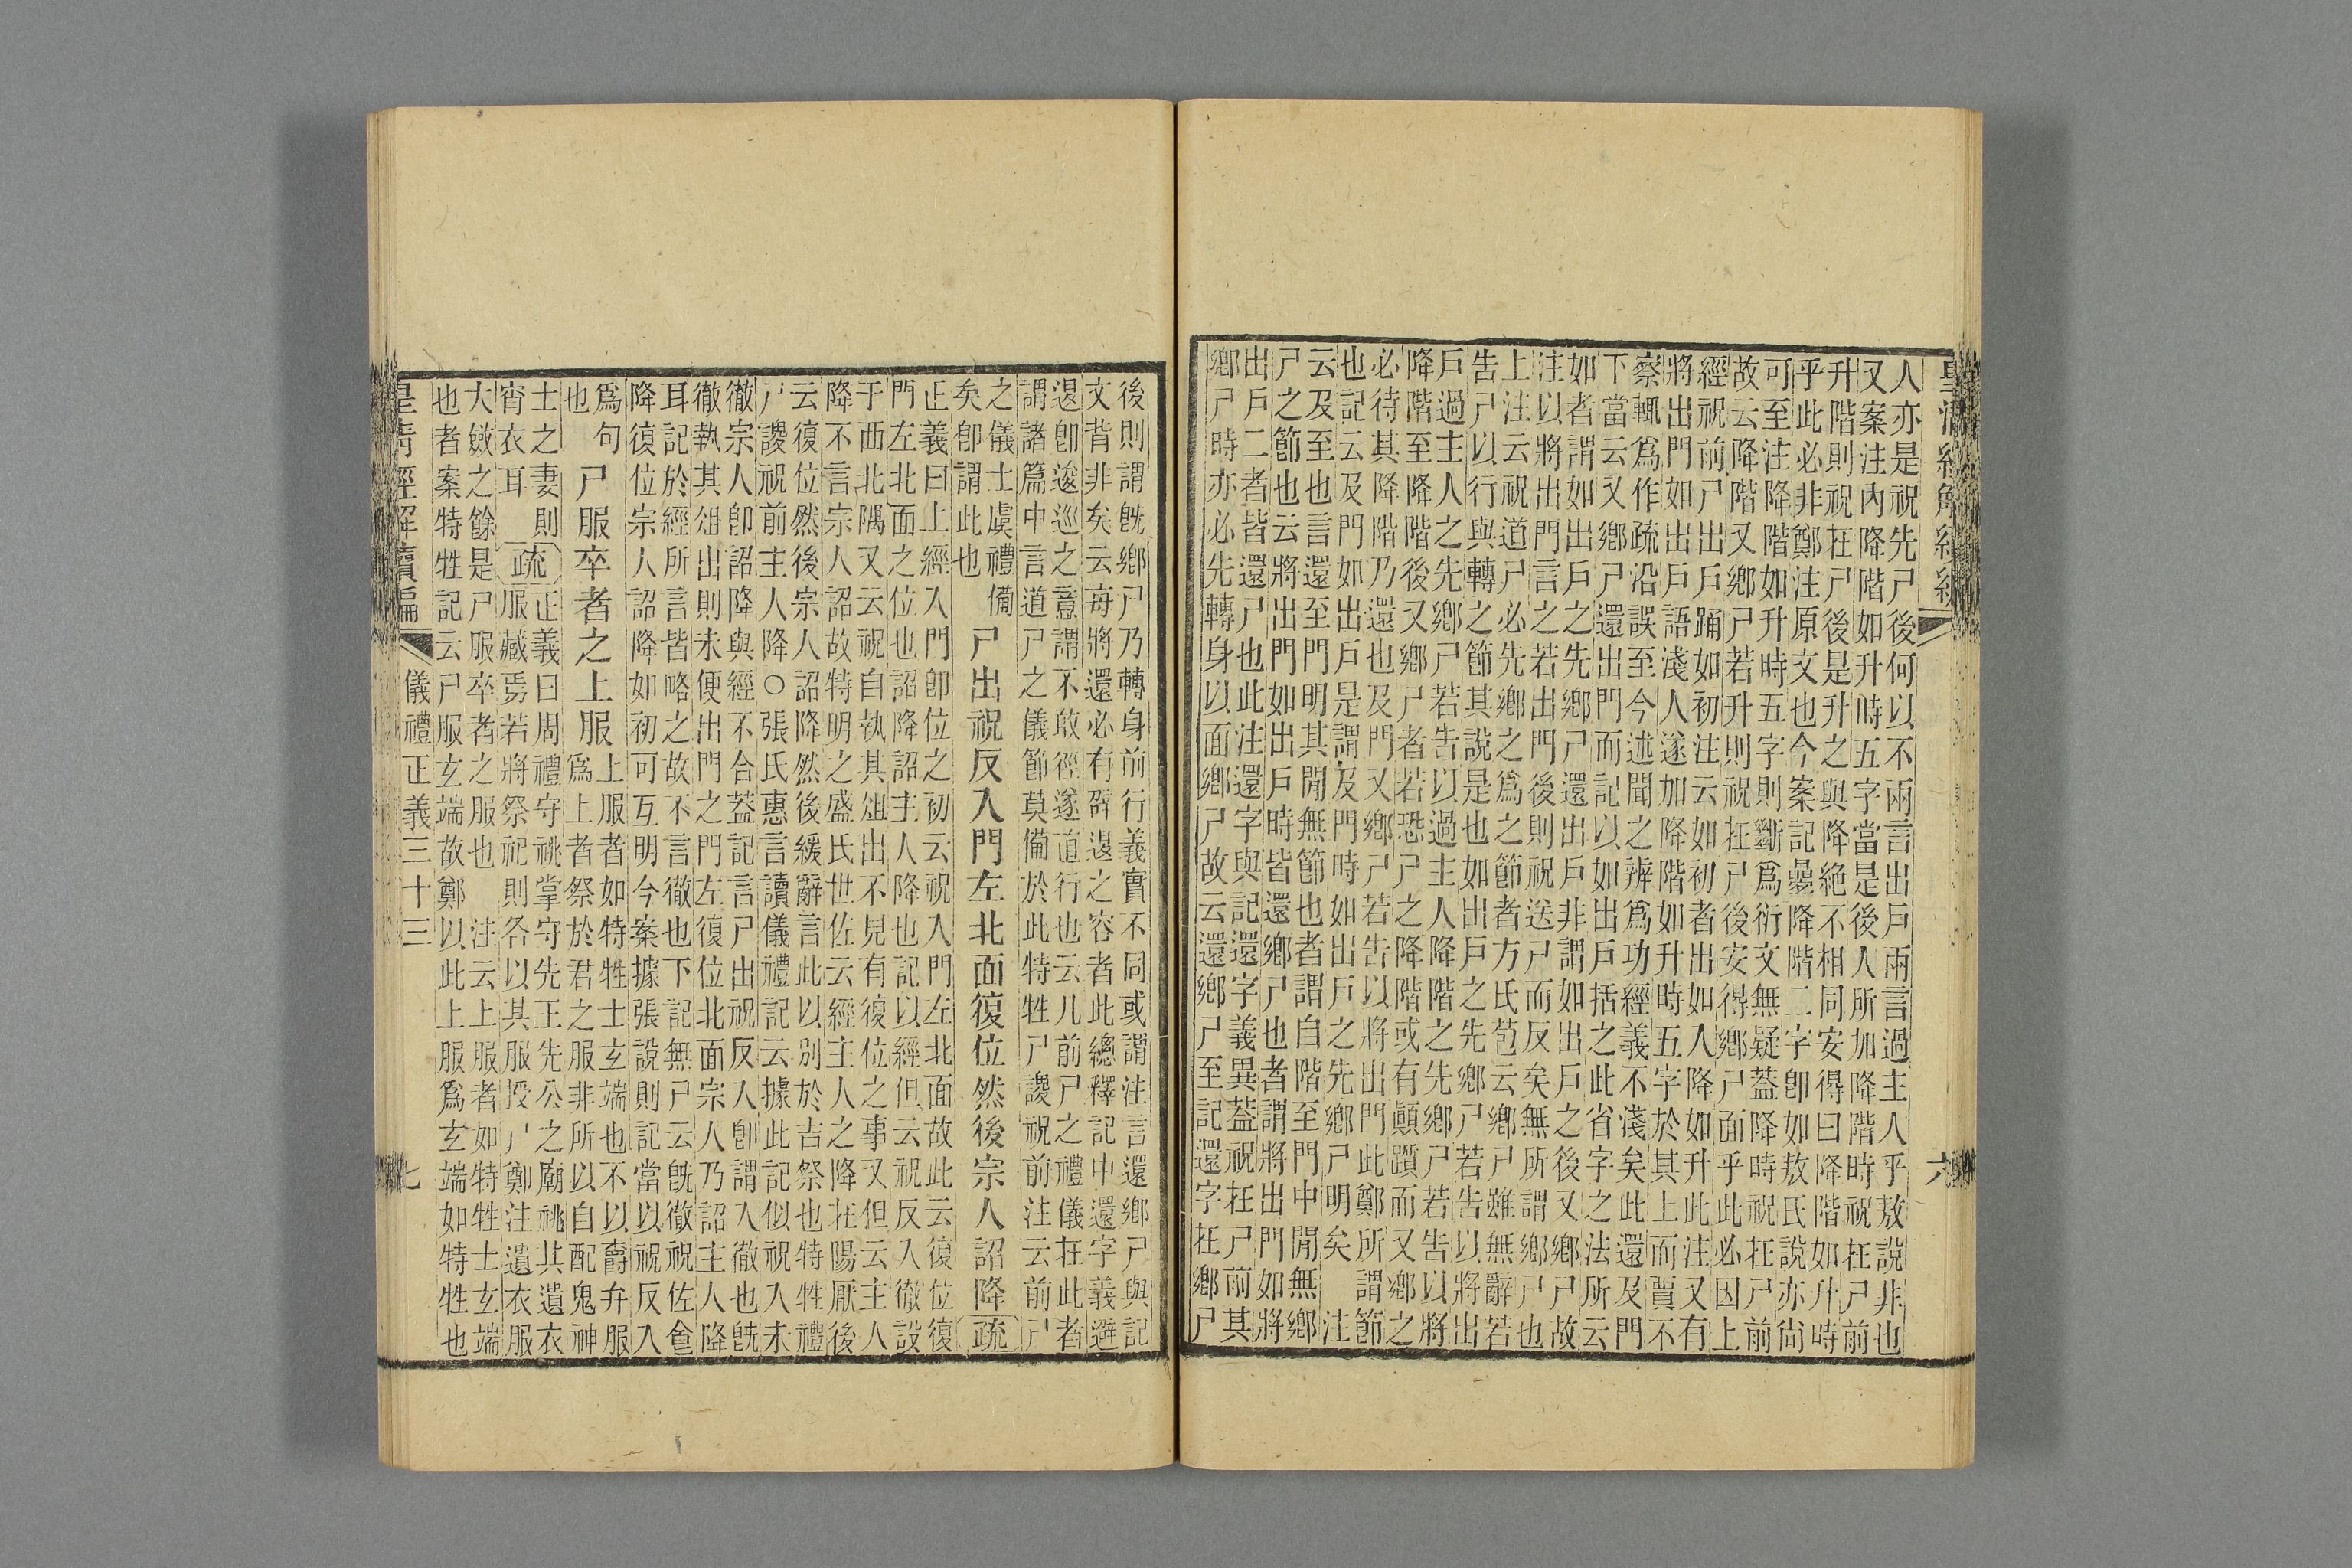 皇清經解續編
六
人亦是祝先尸後何以不兩言出戶兩言過主人乎敖說非也
又案注內降階如升時五字當是後人所加降階時祝在尸前
升階則祝在尸後是升之與降絕不相同安得曰降階如升時
乎此必非鄭注原文也今案記曡降階二字卽如敖氏說亦尙
可至注降階如升時五字則斷爲衍文無疑蓋降時祝在尸前
故云降階又鄉尸若升則祝在尸後安得鄉尸面乎此必因上
經祝前尸出戶踊如初注云如初者出如入降如升此注又有
將出門如出戶語淺人遂加降階如升時五字於其上而賈不
察輒爲作疏沿誤至今述聞之辨爲功經義不淺矣此還及門
下當云又鄉尸還出門而記以如出戶括之此省字之法所云
如者謂如出戶之先鄉尸還出戶非謂如出戶之後又鄉尸故
注以將出門言之若出門後則祝送尸而反矣無所謂鄉尸也
上注云祝道尸必先鄉之爲之節者方氏苞云鄉尸雖無辭若
告尸以行與轉之節其說是也如出戶之先鄉尸若告以將出
戶過主人之先鄉尸若告以過主人降階之先鄉尸若告以將
降階至降階後又鄉尸者若恐尸之降階或有顚躓而又鄉之
必待其降階乃還也及門又鄉尸若告以將出門此鄭所謂節
也記云及門如出戶是謂及門時如出戶之先鄉尸明矣 注
云及至也言還至門明其閒無節也者謂自階至門中閒無鄉
尸之節也云將出門如出戶時皆還鄉尸也者謂將出門如將
出戶二者皆還尸也此注還字與記還字義異蓋祝在尸前其
鄉尸時亦必先轉身以面鄉尸故云還鄉尸至記還字在鄉尸
後則謂旣鄉尸乃轉身前行義實不同或謂注言還鄉尸與記
文背非矣云每將還必有辟退之容者此總釋記中還字義避
退卽逡巡之意謂不敢徑遂直行也云凡前尸之禮儀在此者
謂諸篇中言道尸之儀節莫備於此特牲尸謖祝前注云前尸
之儀士虞禮備
矣卽謂此也
尸出祝反入門左北面復位然後宗人詔降疏
正義曰上經入門卽位之初云祝入門左北面故此云復位復
門左北面之位也詔降詔主人降也記以經但云祝反入徹設
于西北隅又云祝自執其俎出不見有復位之事又但云主人
降不言宗人詔故特明之盛氏世佐云經主人之降在陽厭後
云復位然後宗人詔降然後緩辭言此以別於吉祭也特牲禮
尸謖祝前主人降○張氏惠言讀儀禮記云據此記似祝入未
徹宗人卽詔降與經不合蓋記言尸出祝反入卽謂入徹也旣
徹執其俎出則未便出門之門左復位北面宗人乃詔主人降
耳記於經所言皆略之故不言徹也下記無尸云旣徹祝佐食
降復位宗人詔降如初可互明今案據張說則記當以祝反入
爲句
也
尸服卒者之上服
上服者如特牲士玄端也不以爵弁服
爲上者祭於君之服非所以自配鬼神
士之妻則
宵衣耳
疏
正義曰周禮守祧掌守先正先公之廟祧其遺衣
服藏焉若將祭祀則各以其服授尸鄭注遺衣服
大斂之餘是尸服卒者之服也 注云上服者如特牲士玄端
也者案特牲記云尸服玄端故鄭以此上服爲玄端如特牲也
皇清經解續編
儀禮正義三十三
七